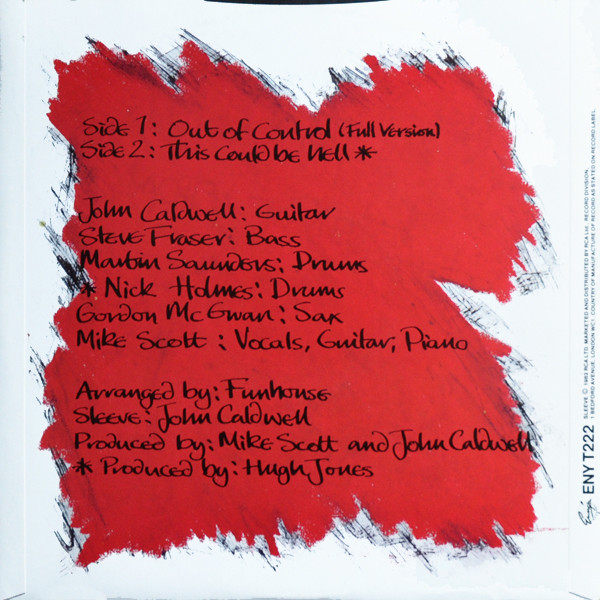 Side 1: Out of Control (Full Version)
Side 2: This Could be Hell *
John Caldwell: Guitar
Steve Fraser: Bass
Martin Saunders: Drums
* Nick Holmes: Drums
Gordon McGwan: Sax
Mike Scott: Vocals, Guitar, Piano
Arranged by: Funhouse
Sleeve: John Caldwell
Produced by: Mike Scott and John Caldwell
* Produced by: Hugh Jones
Ensign ENY T222
SLEEVE © 1982 RCA LTD. MARKETED AND DISTRIBUTED BY RCA Ltd., RECORD DIVISION,
1 BEDFORD AVENUE, LONDON WC1 COUNTRY OF MANUFACTURE OF RECORD AS STATED ON RECORD LABEL.